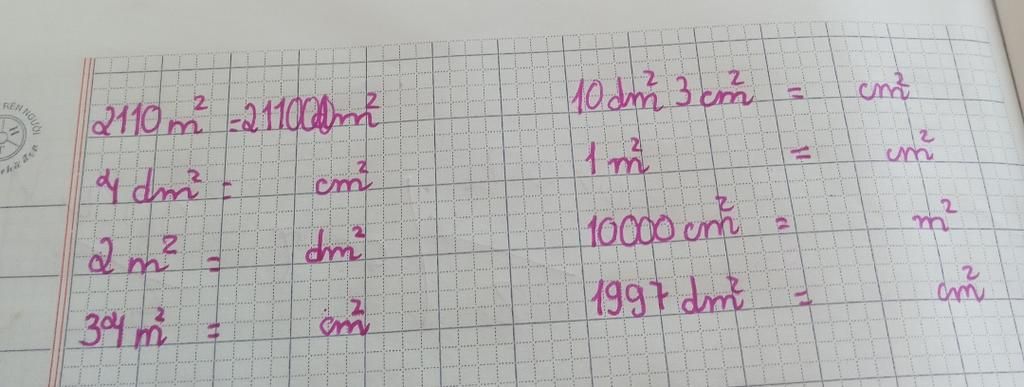 RÈN NGƯỜI
2110m² = 211000dm²
4 dm² = cm²
2 m² = dm²
34 m² = cm²
10dm² 3cm² = cm²
1m² = cm²
10000cm² = m²
1997dm² = cm²